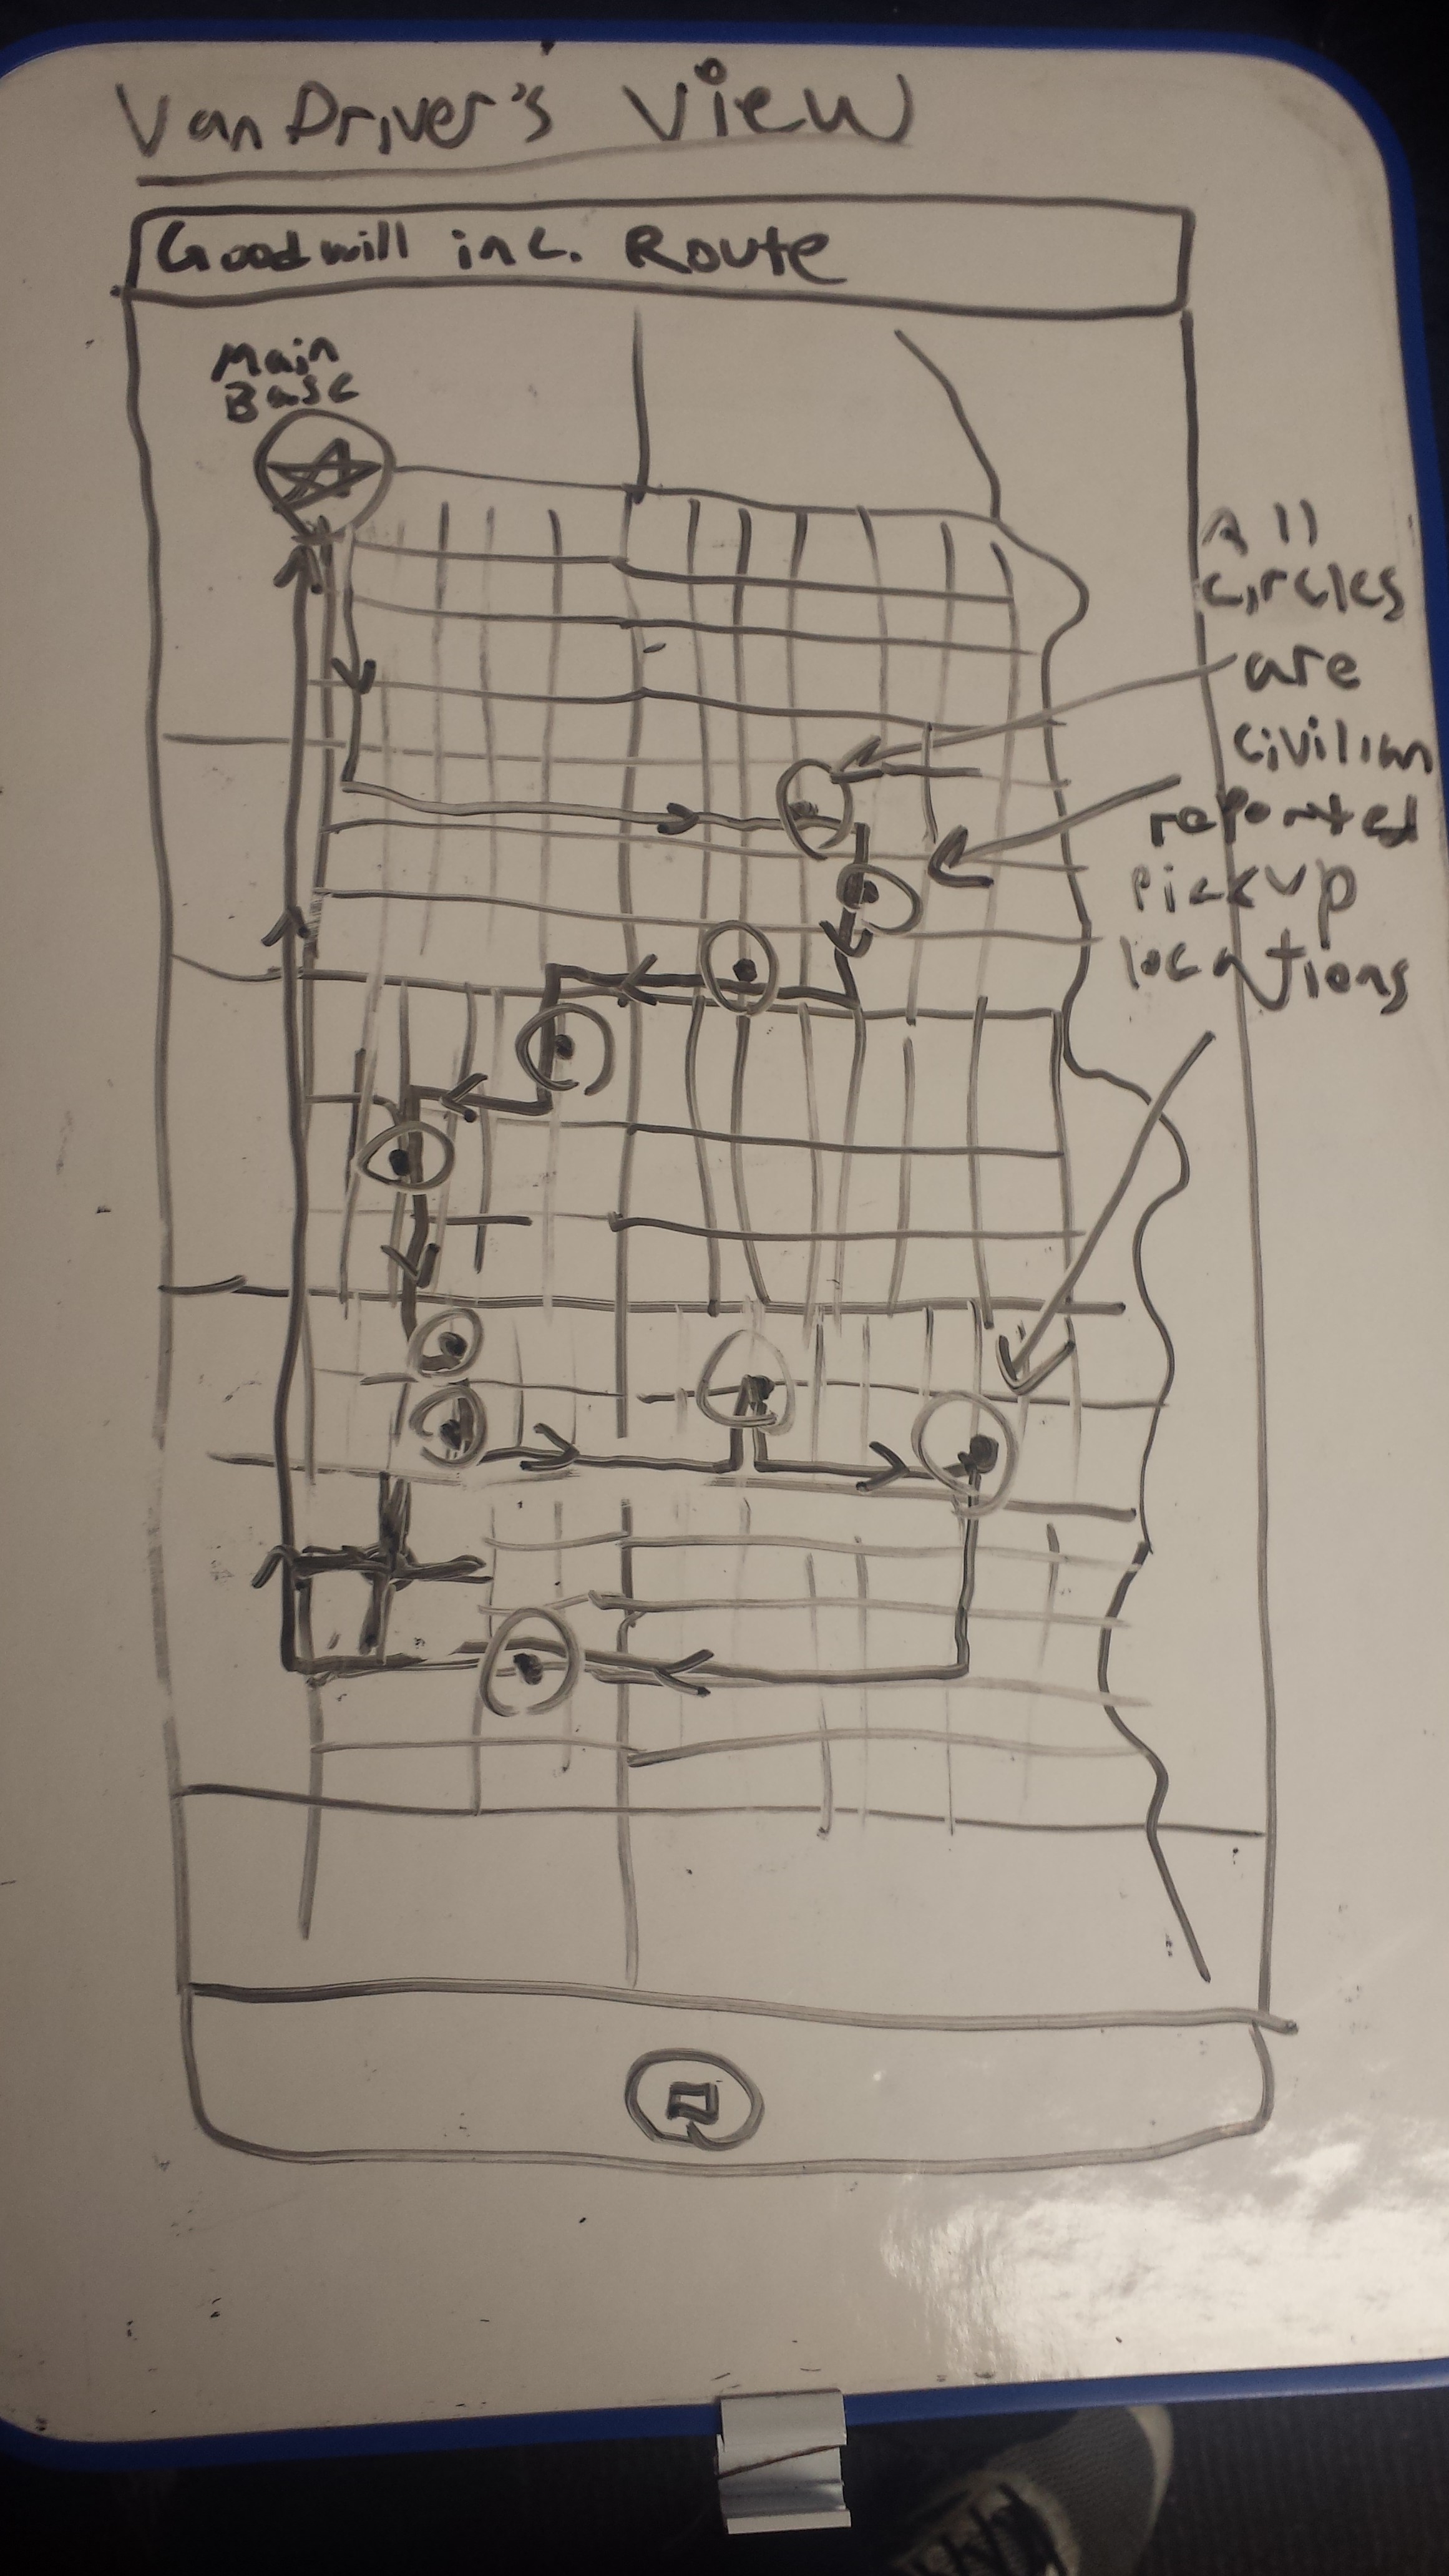 Van Driver's View
Goodwill inc. Route
Main
Base
All
circles
are
civilian
reported
pickup
locations